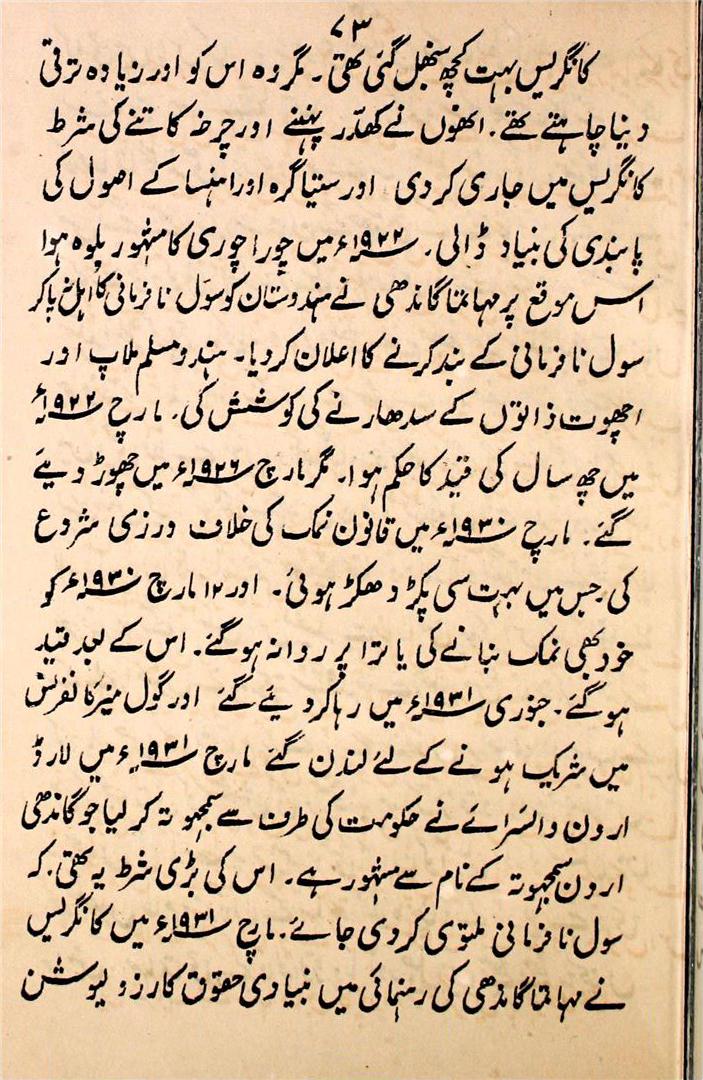 ۷۳
کانگریس بہت کچھ سنبھل گئی تھی۔ مگر وہ اس کو اور زیادہ ترقی
دینا چاہتے تھے۔ انھوں نے کھدّر پہننے اور چرخہ کاتنے کی شرط
کانگریس میں جاری کر دی اور ستیا گرہ اور اہنسا کے اصول کی
پابندی کی بنیاد ڈالی۔ ۱۹۲۲ء میں چورا چوری کا مشہور بلوہ ہوا
اس موقع پر مہاتما گاندھی نے ہندوستان کو سول نافرمانی کا اہل نہ پا کر
سول نافرمانی کے بند کرنے کا اعلان کر دیا۔ ہندو مسلم ملاپ اور
اچھوت ذاتوں کے سدھارنے کی کوشش کی۔ مارچ ۱۹۲۲ء
میں چھ سال کی قید کا حکم ہوا۔ مگر مارچ ۱۹۲۶ء میں چھوڑ دیئے
گئے۔ مارچ ۱۹۳۰ء میں قانون نمک کی خلاف ورزی شروع
کی جس میں بہت سی پکڑ دھکڑ ہوئی۔ اور ۱۲ مارچ ۱۹۳۰ء کو
خود بھی نمک بنانے کی یاترا پر روانہ ہو گئے۔ اس کے بعد قید
ہو گئے۔ جنوری ۱۹۳۱ء میں رہا کر دیئے گئے اور گول میز کانفرنس
میں شریک ہونے کے لئے لندن گئے مارچ ۱۹۳۱ء میں لارڈ
ارون وائسرائے نے حکومت کی طرف سے سمجھوتہ کر لیا جو گاندھی
ارون سمجھوتہ کے نام سے مشہور ہے۔ اس کی بڑی شرط یہ تھی۔ کہ
سول نافرمانی ملتوی کر دی جائے۔ مارچ ۱۹۳۱ء میں کانگریس
نے مہاتما گاندھی کی رہنمائی میں بنیادی حقوق کا رزولیوشن